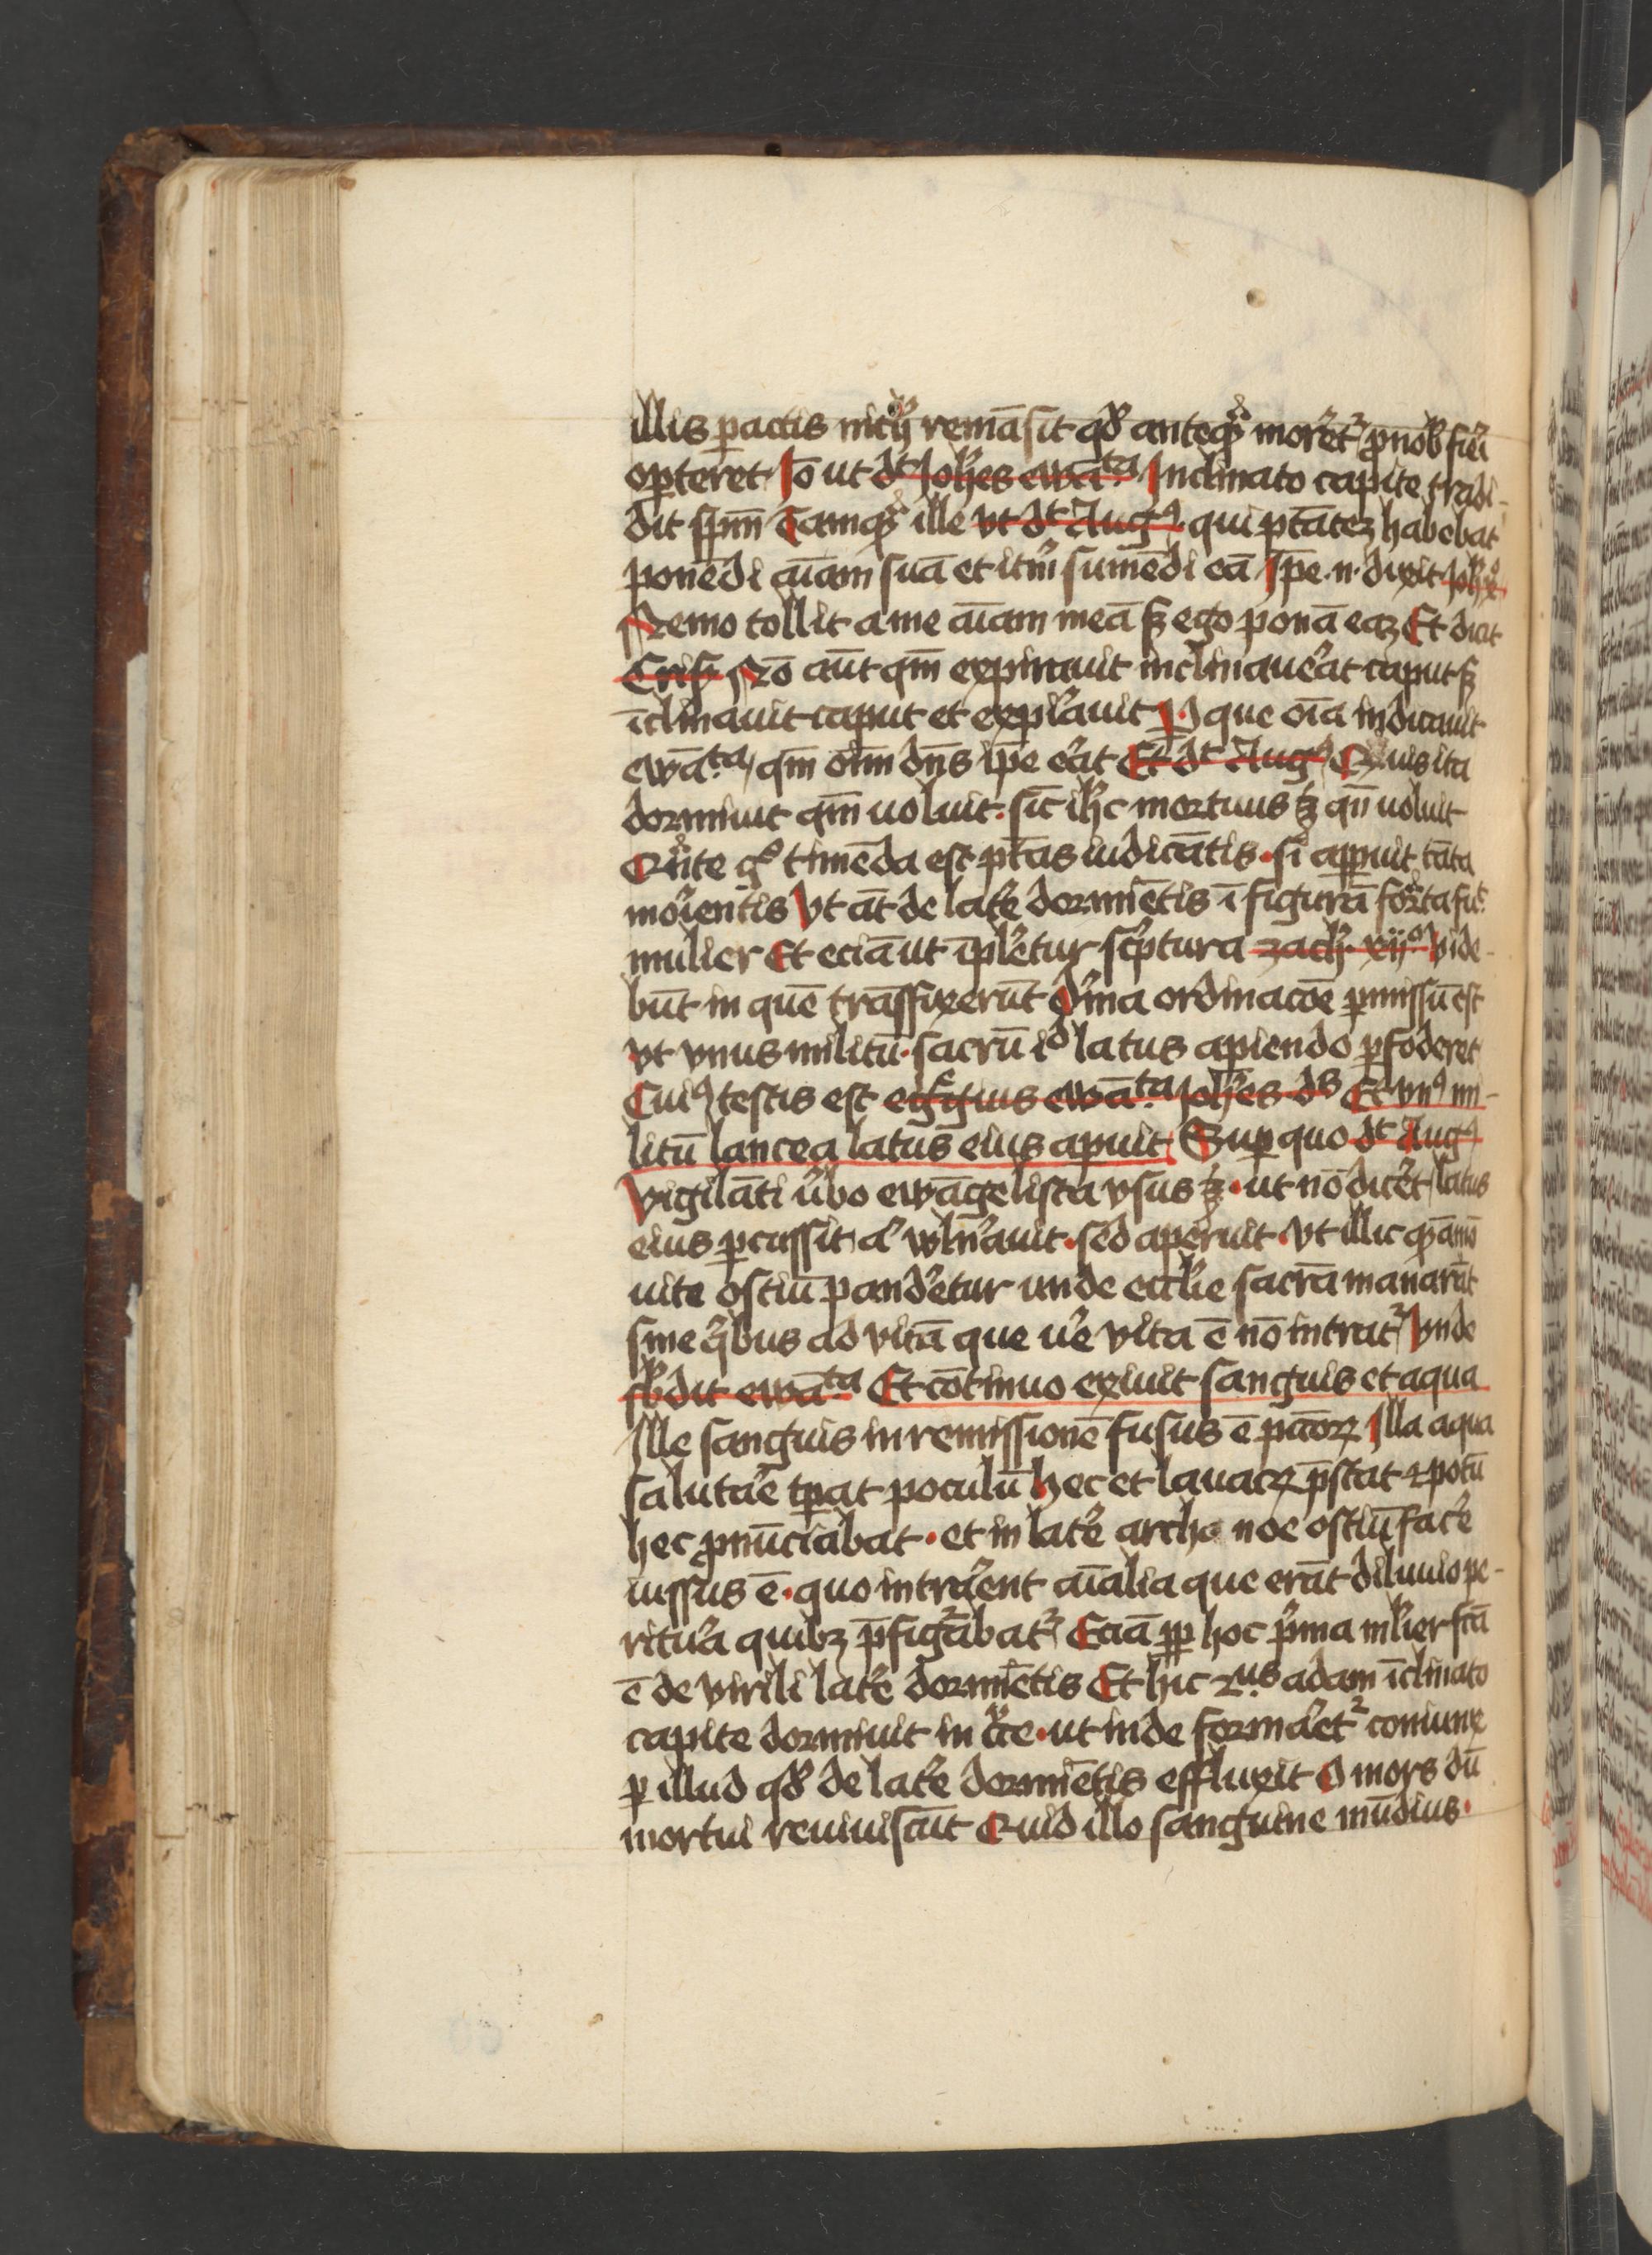 illis pactis nichil remāsit qd̄ antequā moret᷑ p nob̄ fieri
oporteret Io ut dt Johes ewāta Inclinato capite tradi-
dit spm̄ Tamqͣ ille ut dt Augꝰ qui ptātez habebat
ponēdi aīam suā et itm̄ sumēdi eā Ipe .n. dixit Joh̄ xͦ
Nemo tollit a me aīam meā sꝫ ego ponā eaz Et dicit
Cris Nō aūt qm̄ expirauit inclinauēat caput sꝫ
īclinauit caput et expīauit P que oīa indicauit
ewāta qm̄ oīm dn̄s ipe eāt Et dt Augꝰ Quis ita
dormiuit qm̄ uoluit sic ih̄c mortuus ē qn̄ uoluit
Quāte gͦ timēda est ptās iudicātis si apparuit tāta
moīentis Ut āt de late dormiētis ī figurā formata fuit
mulier Et eciā ut īpletur scptura zach xijͦ vide-
būt in quē trāsfixerūt Diuina ordinacōe pmissū est
vt vnus militū sacrū id latus apiendo pfoderet
Cuiꝰ testis est egregius ewāta Johes ds Et vnꝰ mi-
litū lancea latus eius apuit Sup quo dt Augꝰ
vigilāti ūbo ewāgelista vsus ē ut nō dicet latus
eius pcussit aͭ wln̄auit sed aperuit vt illic quodāmodo
uite ostiū pandetur unde ecclie sacrā manarāt
sine qͥbus ad vitā que ue vita ē nō intrat᷑ Unde
sbdit ewāta Et cōtinuo exiuit sanguis et aqua
Ille sanguis in remissionē fusus ē pcāorꝝ Illa aqua
salutāe tpat poculū hec et lauacrꝝ pstat et potū
hec pnūciabat et in late arche noe ostiū face
iussus ē quo intraent aīalia que erāt diluuio pe-
ritura quibꝫ pfigurabat᷑ Eciā ꝓp hoc pma mlier fcā
ē de virili late dormiētis Et hic 2us adam īclinato
capite dormiuit in cͬce ut inde formāet᷑ coniunx
p illud qd̄ de late dormiētis effluxit O mors dū
mortui reuiuiscūt Quid illo sanguine mūdius